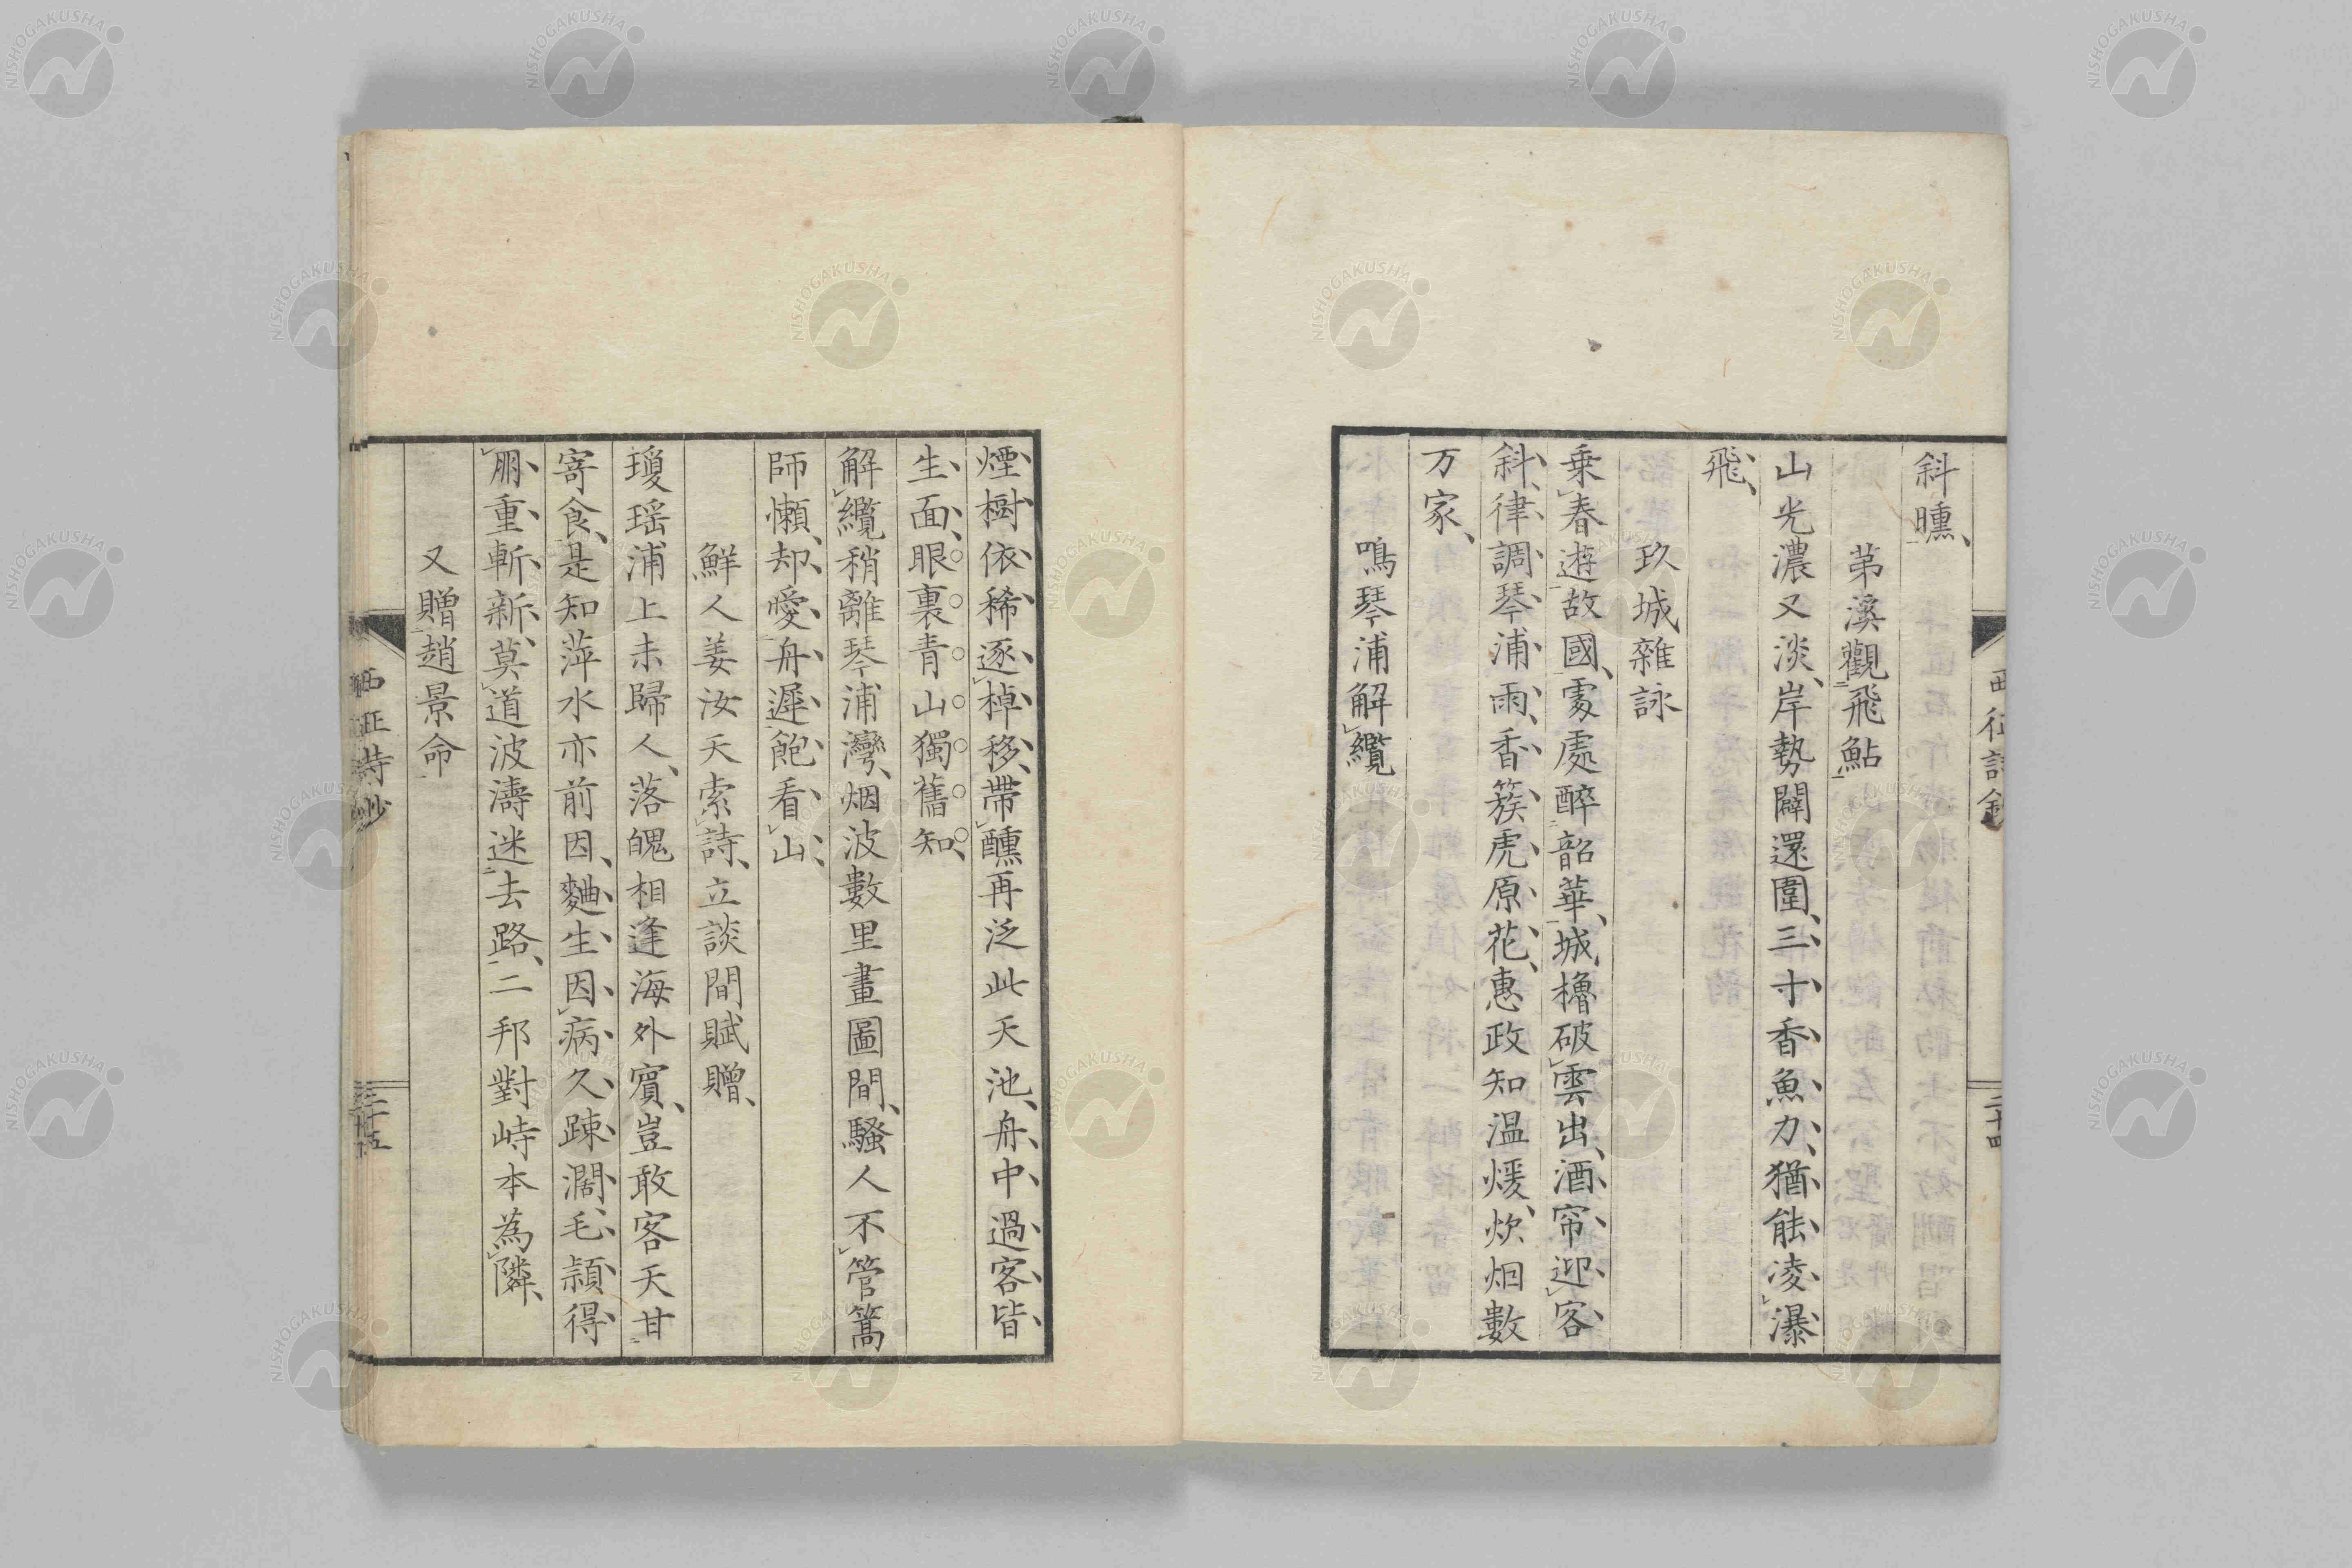 斜曛、
弟溪觀飛鮎
山光濃又淡、岸勢闢還圍、三寸香魚力、猶能凌瀑
飛、
玖城雜詠
乗春遊故國、雯處醉韶華、城櫓破雲出、酒帘迎客
斜、律調琴浦雨、香簇虎原花、惠政知温煖、炊烟數
万家、
鳴琴浦解纜
西征詩鈔
二十四
煙樹依稀逐棹移、帶醺再泛此天池、舟中過客皆
生面、眼裏青山獨舊知、
解纜稍離琴浦灣、烟波數里畫圖間、騷人不管篙
師懶、却愛舟遲飽看山、
鮮人姜汝天索詩、立談間賦贈、
瓊瑶浦上未歸人、落魄相逢海外賓、豈敢客天甘
寄食、是知萍水亦前因、麯生因病久踈濶、毛頴得
朋重斬新、莫道波濤迷去路、二邦對峙本為隣、
又贈趙景命
西征詩鈔
二十五
NISHOGAKUSHA